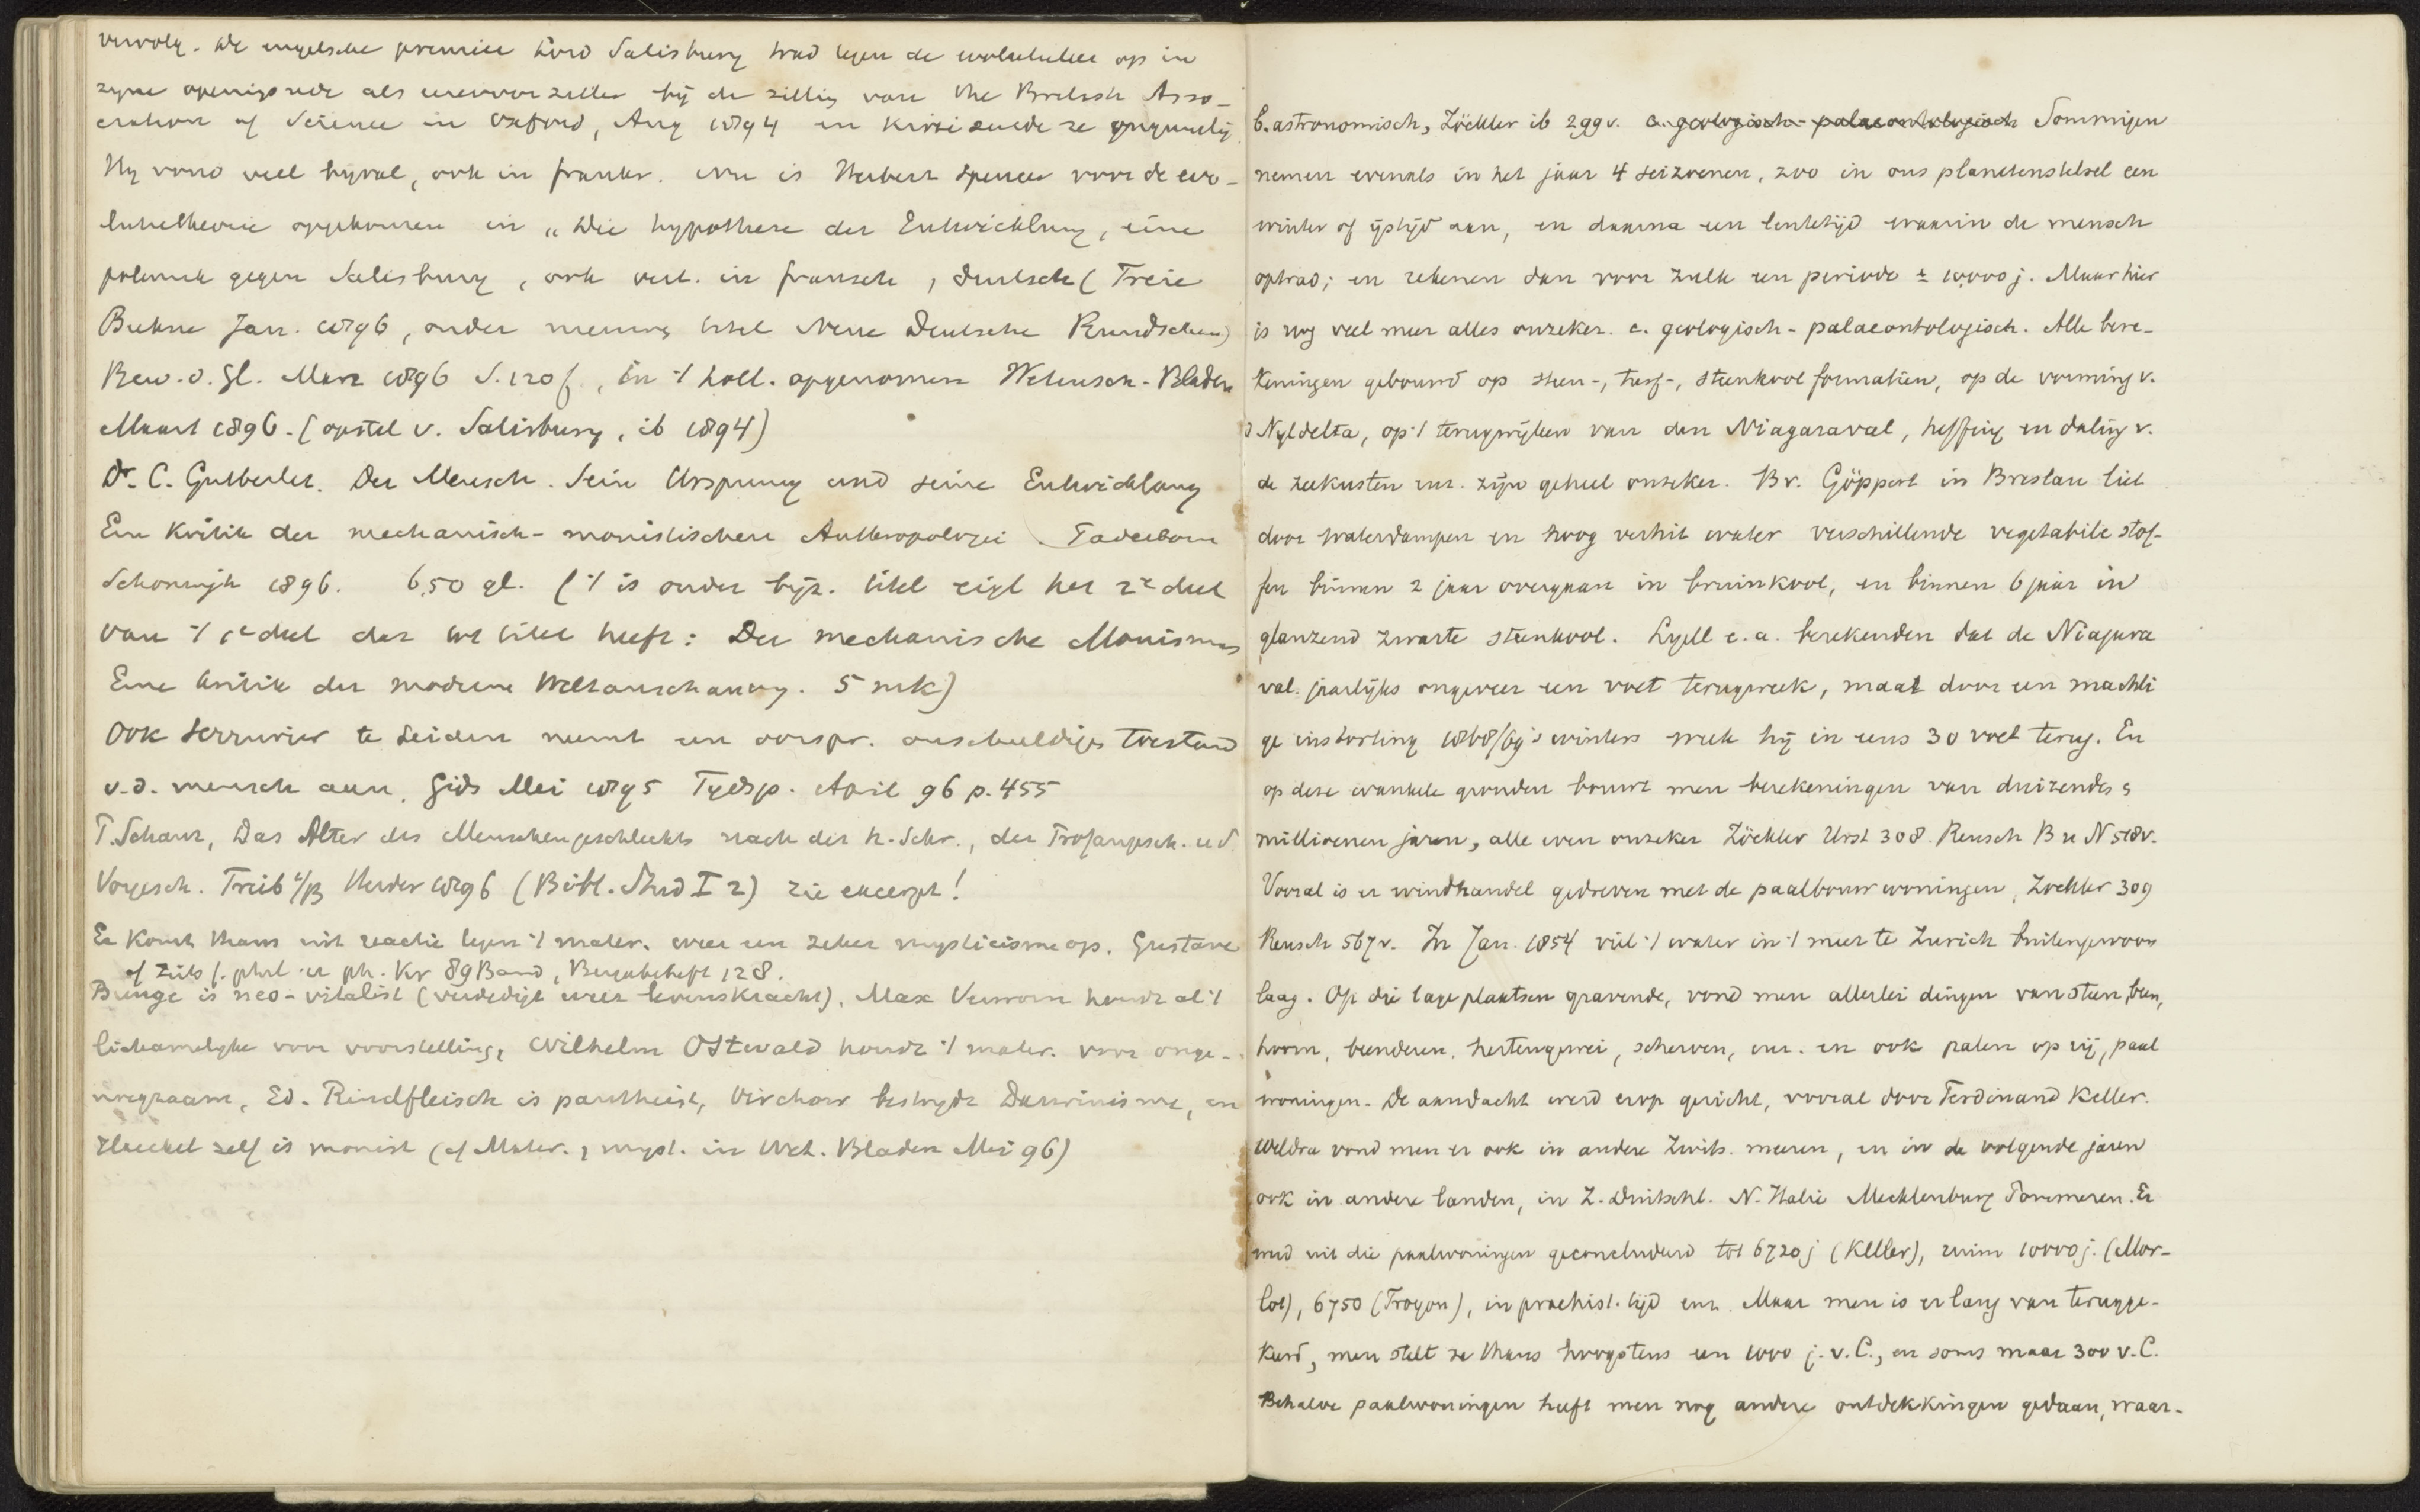 vervolg. De engelsche premier Lord Salisbury trad tegen de evolutieleer op in
zyne openingsrede als eerevoorzitter bij de zitting van the British Asso-
ciation of Science in Oxford, Aug 1894 en kritiseerde ze ongunstig
Hy vond veel byval, ook in frankr. Nu is Herbert Spencer voor de evo-
lutietheorie opgekomen in „Die hypothese der Entwicklung, eine
polemik gegen Salisbury, ook vert. in fransch, duitsch (Freie
Buhne Jan. 1896, onder nieuwe titel Neue Deutsche Rundschau)
Bew. d. Gl. Marz 1896 S. 120f., in 't holl. opgenomen Wetensch-Bladen
Maart 1896. (opstel v. Salisbury, ib 1894)
Dr. C. Gutberlet. Der Mensch. Sein Ursprung und seine Entwicklung
Ein Kritik der mechanisch-monistischen Anthropologie. Paderborn
Schoningh 1896. 6,50 gl. ('t is onder byz. titel eigl het 2e deel
van 't 1e deel dat tot titel heeft: Der mechanische Monismus
Eine Kritik der modernen Weltanschauung. 5 mk)
Ook Serrurier te Leiden neemt een oorspr. onschuldigen toestand
v.d. mensch aan, Gids Mei 1895 Tydsp. April 96 p. 455
P. Schanz, Das Alter des Menschengeschlechts nach der h. Schr., der Profangesch. u d.
Vorgesch. Freib i/B Herder 1896 (Bibl. Stud I 2) zie excerpt!
Er komt thans uit reactie tegen 't mater. weer een zeker mysticisme op. Gustave
cf Zeits f. phil. u ph. Kr 89 Band, 128.
Bunge is neo-vitalist (verdedigt weer levenskracht), Max Verworn houdt al 't
lichamelyke voor voorstelling, Wilhelm Ostwald houdt 't mater. voor onge-
noegzaam, Ed. Rindfleisch is pantheist, Virchow bestrydt Darwinisme, en
Haeckel zelf is monist (cf Mater. & myst. in Wet. Bladen Mei 96)
b. astronomisch, Zöckler ib 299 v. c. geologisch-palaeontologisch Sommigen
nemen evenals in het jaar 4 seizoenen, zoo in ons planetenstelsel een
winter of ijstijd aan, en daarna een lentetijd waarin de mensch
optrad; en rekenen dan voor zulk een periode ± 10,000 j. Maar hier
is nog veel meer alles onzeker. c. geologisch-palaeontologisch. Alle bere-
keningen gebouwd op steen-, turf-, steenkool formatien, op de vorming v.
d Nyldelta, op 't terugwijken van den Niagaraval, heffing en daling v.
de zeekusten enz. zijn geheel onzeker. Bv. Göppert in Breslau liet
door waterdampen en hoog verhit water verschillende vegetabile stof-
fen binnen 2 jaar overgaan in bruinkool, en binnen 6 jaar in
glanzend zwarte steenkool. Lyell e.a. berekenden dat de Niagara
val jaarlijks ongeveer een voet terugweek, maar door een machti
ge instorting 1868/69 's winters week hij in eens 30 voet terug. En
op deze wankele gronden bouwt men berekeningen van duizenden &
millioenen jaren, alle even onzeker Zöckler Urst 308. Reusch B u N 518 v.
Vooral is er windhandel gedreven met de paalbouw woningen, Zockler 309
Reusch 567 v. In Jan. 1854 viel 't water in 't meer te Zurich buitengewoon
laag. Op die lage plaatsen gravende, vond men allerlei dingen van steen, been,
hoorn, beenderen, hertengewei, scherven, enz. en ook palen op rij, paal
woningen. De aandacht werd erop gericht, vooral door Ferdinand Keller.
Weldra vond men er ook in andere Zwits. meeren, en in de volgende jaren
ook in andere landen, in Z. Duitschl. N. Italie Mecklenburg Pommeren. Er
werd uit die paalwoningen geconcludeerd tot 6720 j (Keller), ruim 10000 j. (Mor-
lot), 6750 (Troyon), in praehist. tijd enz. Maar men is er lang van terugge-
keerd, men stelt ze thans hoogstens een 1000 j. v. C., en soms maar 300 v. C.
Behalve paalwoningen heeft men nog andere ontdekkingen gedaan, waar-